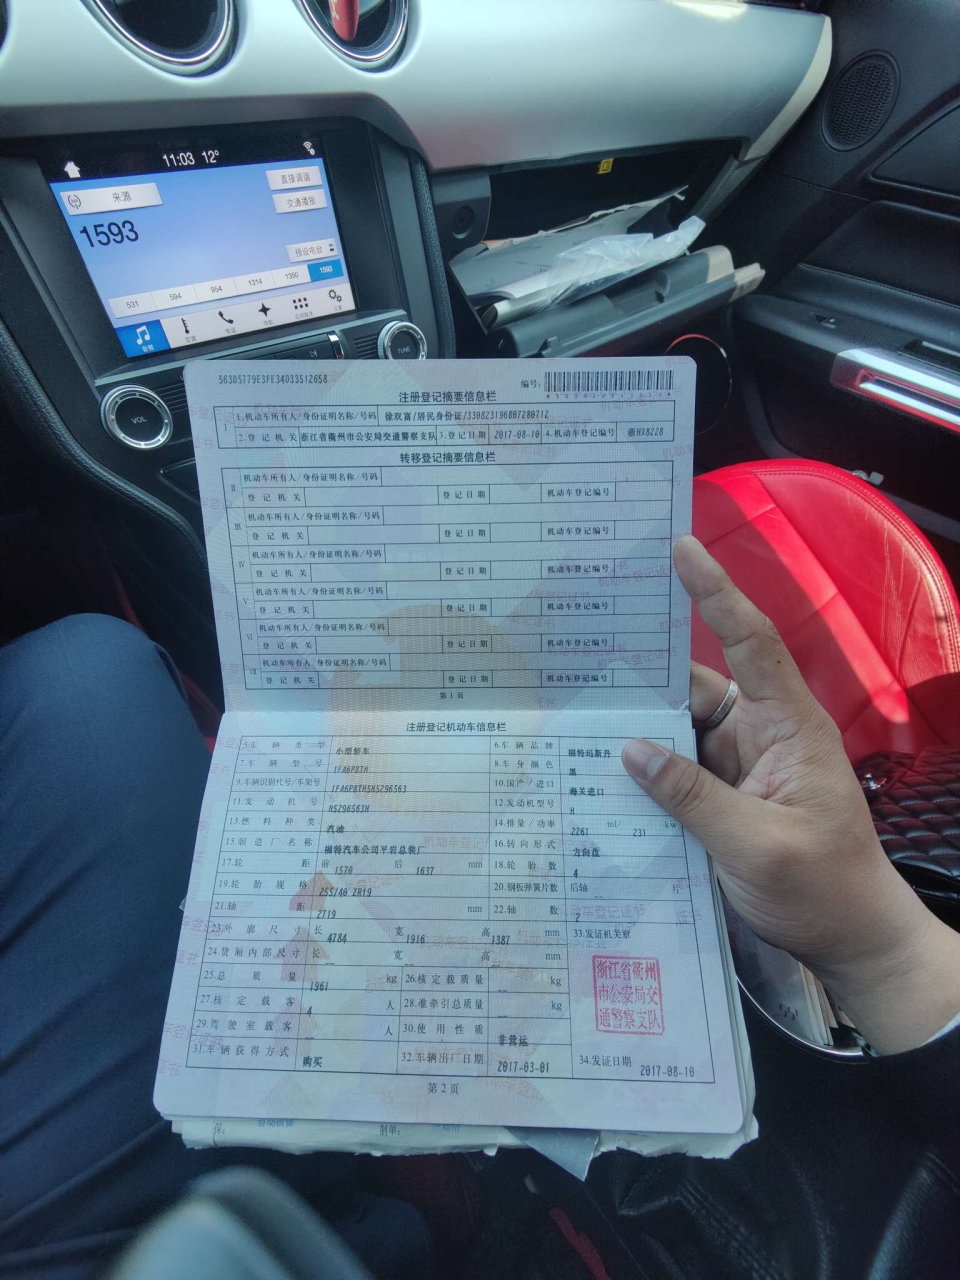 11:03 12°
来源
直接调谐
交通播报
1593
预设电台
531 594 954 1314 1350 1593
音频 交通 电话 导航
VOL
TUNE
563D5779E3FE34D33512658
编号:
注册登记摘要信息栏
I 1.机动车所有人/身份证明名称/号码 徐双富/居民身份证/330823196807280712
2.登记机关 浙江省衢州市公安局交通警察支队 3.登记日期 2017-08-10 4.机动车登记编号 浙HX8228
转移登记摘要信息栏
II 机动车所有人/身份证明名称/号码
登记机关 登记日期 机动车登记编号
III 机动车所有人/身份证明名称/号码
登记机关 登记日期 机动车登记编号
IV 机动车所有人/身份证明名称/号码
登记机关 登记日期 机动车登记编号
V 机动车所有人/身份证明名称/号码
登记机关 登记日期 机动车登记编号
VI 机动车所有人/身份证明名称/号码
登记机关 登记日期 机动车登记编号
VII 机动车所有人/身份证明名称/号码
登记机关 登记日期 机动车登记编号
第1页
注册登记机动车信息栏
5.车辆类型 小型轿车 6.车辆品牌 福特玛斯丹
7.车辆型号 1FA6P8TH 8.车身颜色 黑
9.车辆识别代号/车架号 1FA6P8TH5H5296563 10.国产/进口 海关进口
11.发动机号 H5296563H 12.发动机型号 H
13.燃料种类 汽油 14.排量/功率 2261 ml/ 231 kw
15.制造厂名称 福特汽车公司平岩总装厂 16.转向形式 方向盘
17.轮距 前 1570 后 1637 mm 18.轮胎数 4
19.轮胎规格 255/40 ZR19 20.钢板弹簧片数 后轴 -- 片
21.轴距 2719 mm 22.轴数 2
23.外廓尺寸 长 4784 宽 1916 高 1387 mm 33.发证机关章
24.货厢内部尺寸 长 宽 -- 高 -- mm
25.总质量 1961 kg 26.核定载质量 -- kg
27.核定载客 4 人 28.准牵引总质量 -- kg
29.驾驶室载客 人 30.使用性质 非营运
31.车辆获得方式 购买 32.车辆出厂日期 2017-03-01 34.发证日期 2017-08-10
浙江省衢州
市公安局交
通警察支队
第2页
保:
制单: